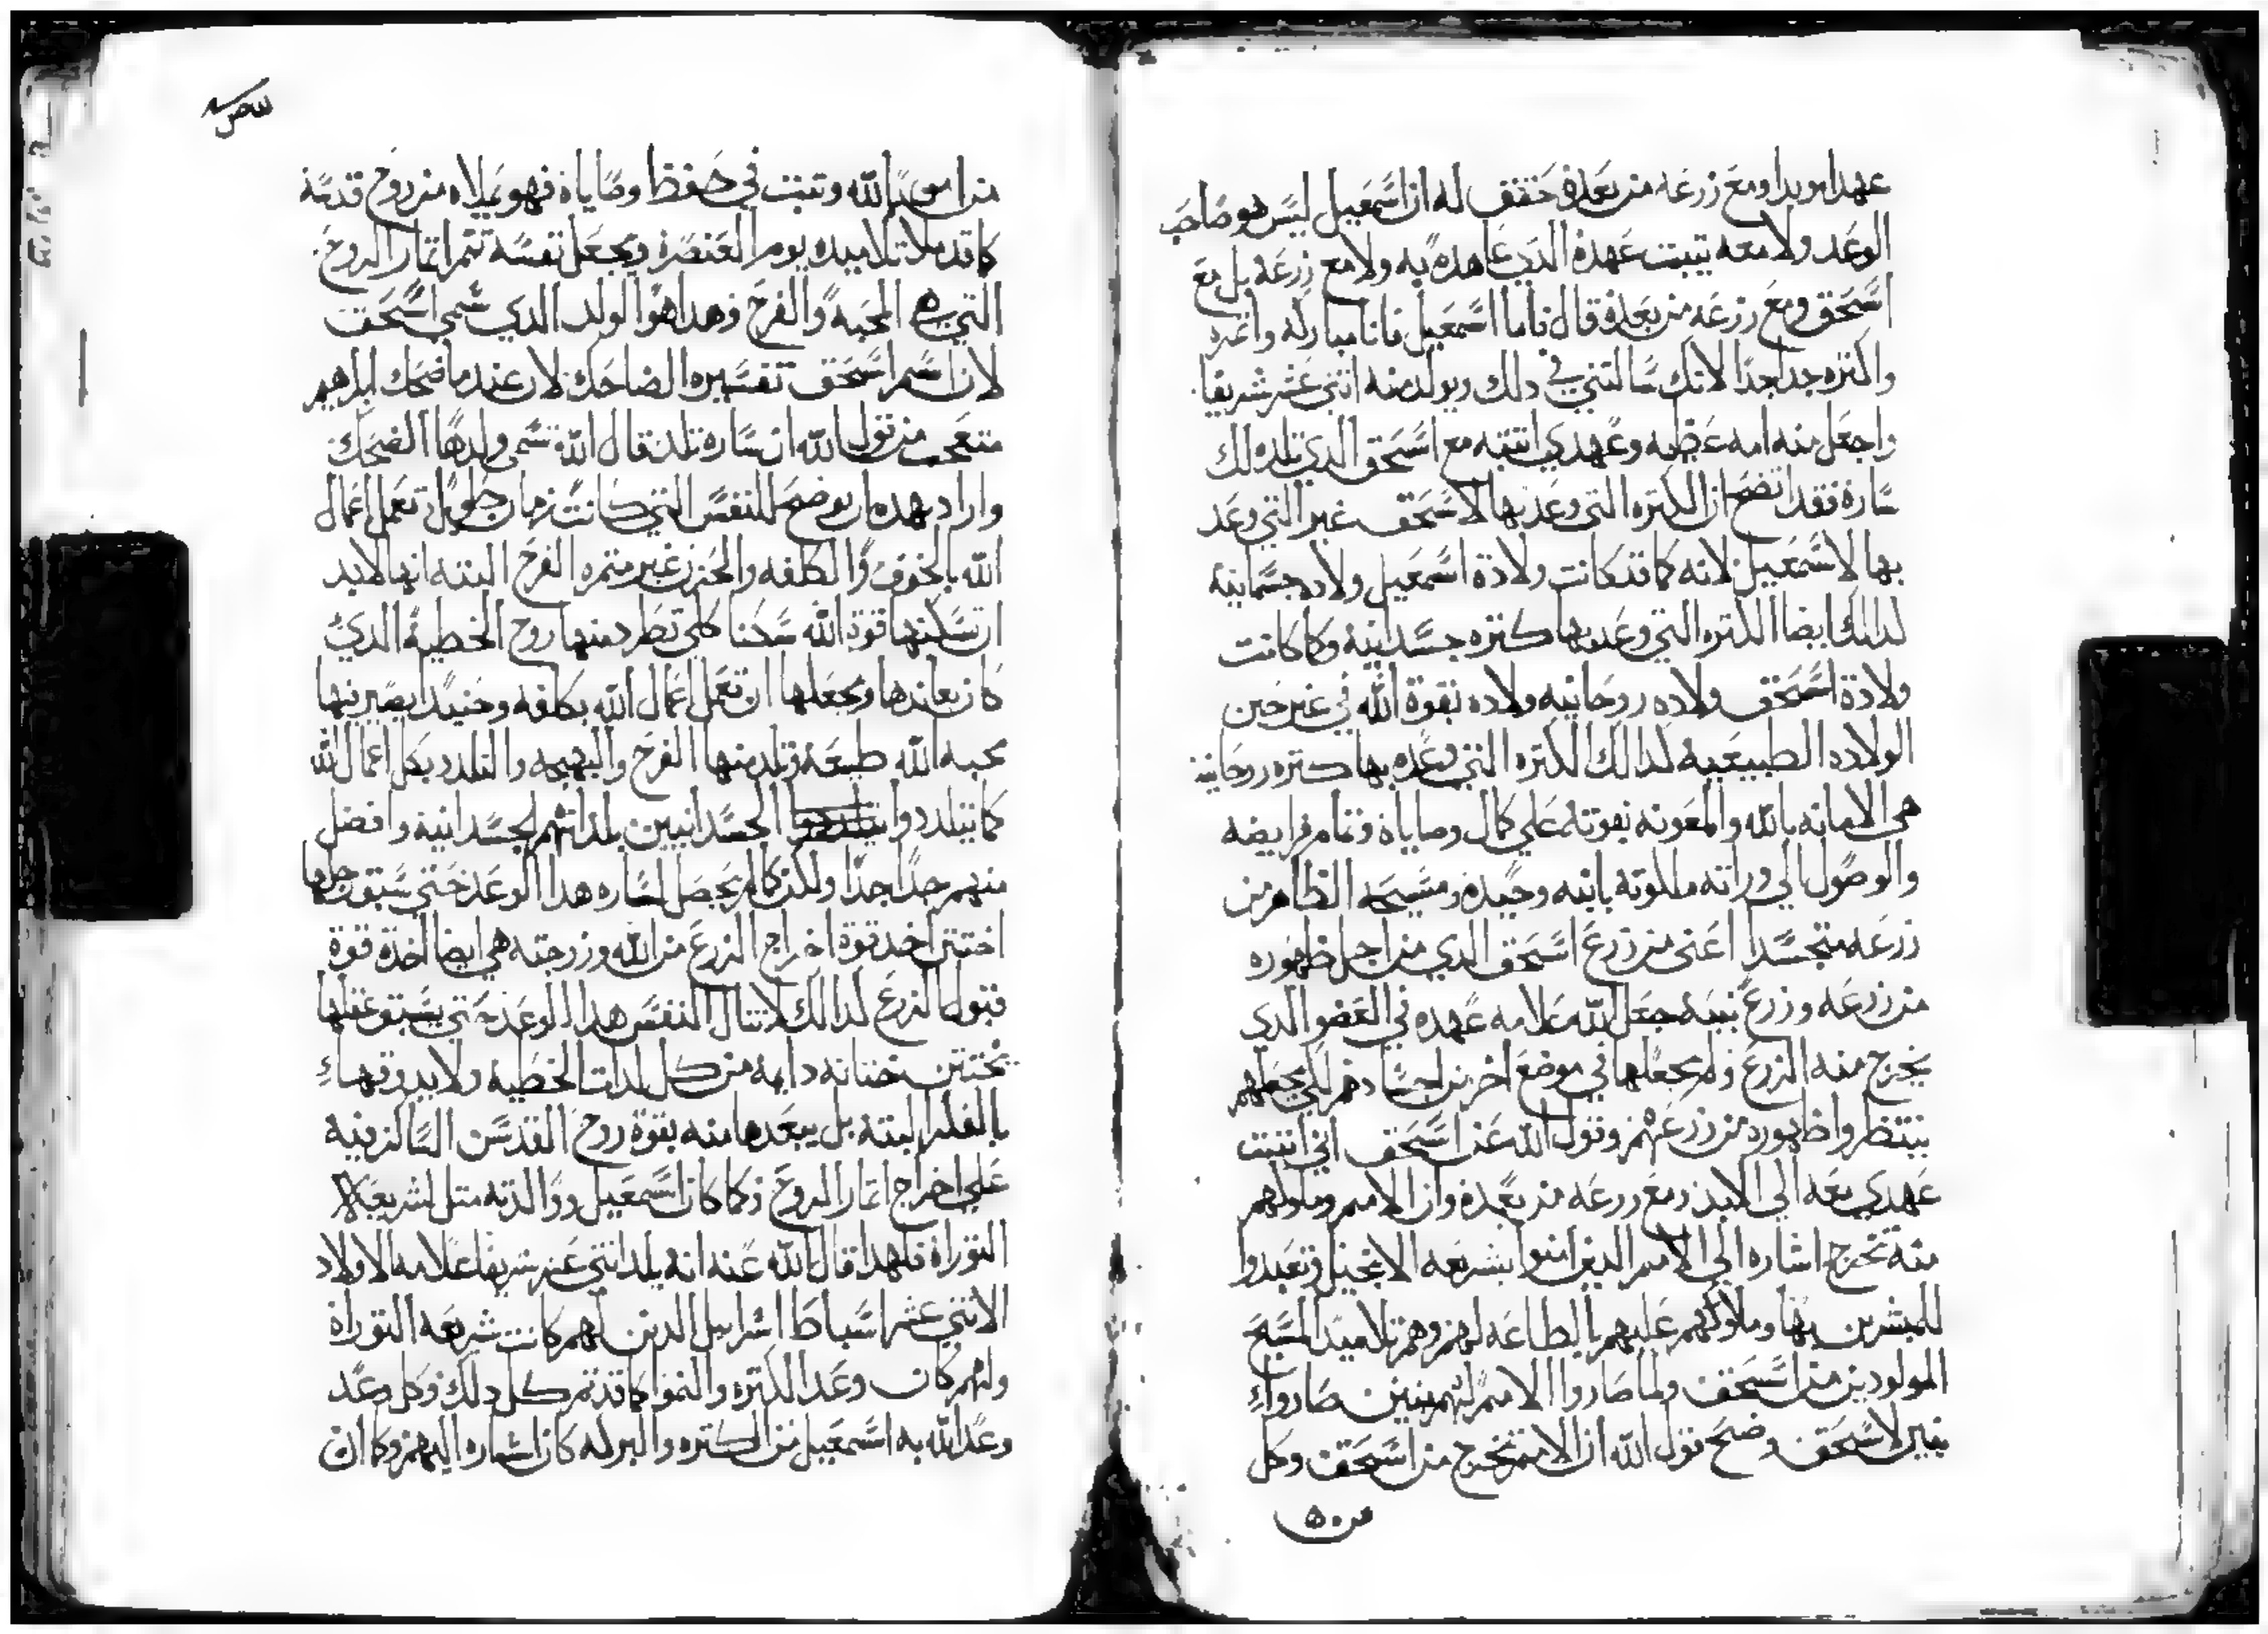 عهدا موبدا ومع زرعه من بعده حقق له ان اسمعيل ليس هو صاحب
الوعد ولا معه تيبت عهده الدي عاهده به ولا مع زرعه بل مع
اسحق ومع زرعه من بعده فقال فاما اسمعيل فانا مباركه واتمره
واكتره جدا جدا لانك سالتني في دلك ويولد منه اتني عشر شريفا
واجعل منه امه عظيمه وعهدي اتبته مع اسحق الدي تلده لك
ساره فقد اتضح ان الكتره التي وعد بها لاسحق غير التي وعد
بها لاسمعيل لانه كما قد كانت ولادة اسمعيل ولاده جسمانية
لدالك ايضا الكتره التي وعد بها كتره جسدانية وكما كانت
ولادة اسحق ولاده روحانيه ولاده بقوة الله في غير حين
الولاده الطبيعيه لدالك الكتره التي وعده بها كتره روحانية
هي الامانه بالله والمعونه بقوته على كمال وصاياه وتمام فرايضه
والوصول الي وراتة ملكوته بابنه وحيده ومسيحه الظاهر من
زرعه متجسدا اعني من زرع اسحق الدي من اجل ظهوره
من زرعه وزرع بنيه جعل الله علامه عهده في العضو الدي
يخرج منه الزرع ولم يجعلها في موضع اخر من اجسادهم لكي يجعلهم
ينتظروا ظهوره من زرعهم وقول الله عن اسحق اني اتبت
عهدي معه الي الابد ومع زرعه من بعده وان الامم وملوكهم
منه تخرج اشاره الي الامم الدين امنوا بشريعه الانجيل وتعبدوا
للمبشرين بها وملوكهم عليهم بالطاعه لهم وهم تلاميد المسيح
المولودين من اسحق ولما صاروا الامم لهم بنين صاروا
بنين لاسحق وضح قول الله ان الامم تخرج من اسحق وكل
من امن بالله وتبت في حفظ وصاياه فهو يملاه من روح قدسة
كما قد ملا تلاميده يوم العنصره ويجعل نفسه تتمر اتمار الروح
التي هي المحبه والفرح وهدا هو الولد الدي سمي اسحق
لان اسم اسحق تفسيره الضاحك لان عندما ضحك ابرهيم
متعجب من قول الله ان ساره تلد قال الله تسمي ولدها الضحك
واراد بهده ان يوضح للنفس التي كانت زمان طويل تعمل اعمال
الله بالخوف والكلفه والحزن غير متمره الفرح البته انها لابد
ان تسكنها قوة الله سكنا كلي تطرد منها روح الخطية الدي
كان يعاندها ويجعلها ان تعمل اعمال الله بكلفه وحنيدا يصير فيها
محبه الله طبيعة وتلد منها الفرح والبهجه والتلدد بكل اعمال الله
كما يتلددوا الجسدانيين بلداتهم الجسدانية وافضل
منهم جدا جدا ولكن كما لم يحصل لساره هدا الوعد حتي سبق رجلها
اختتن اخد قوة اخراج الزرع من الله وزوجته هي ايضا اخدة قوة
قبول الزرع لدالك لا تنال النفس هدا الوعد حتي يسبق عقلها
يختتن ختانه دايمه من كل لدات الخطية ولا يدوقها
بالفكر البته بل يبعدها منه بقوة روح القدس الساكن فيه
علي اخراج اتمار الروح وكما كان اسمعيل ووالدته متل لشريعة
التوراة فلهدا قال الله عنه انه يلد اتني عشر شريفا علامه الاولاد
الاتني عشر اسباط اسراييل الدين لهم كانت شريعه التوراة
ولهم كان وعد الكتره والنموا كما قد تم كل دلك وكل وعد
وعد الله به اسمعيل من الكتره والبركه كان اشاره اليهم وكما ان